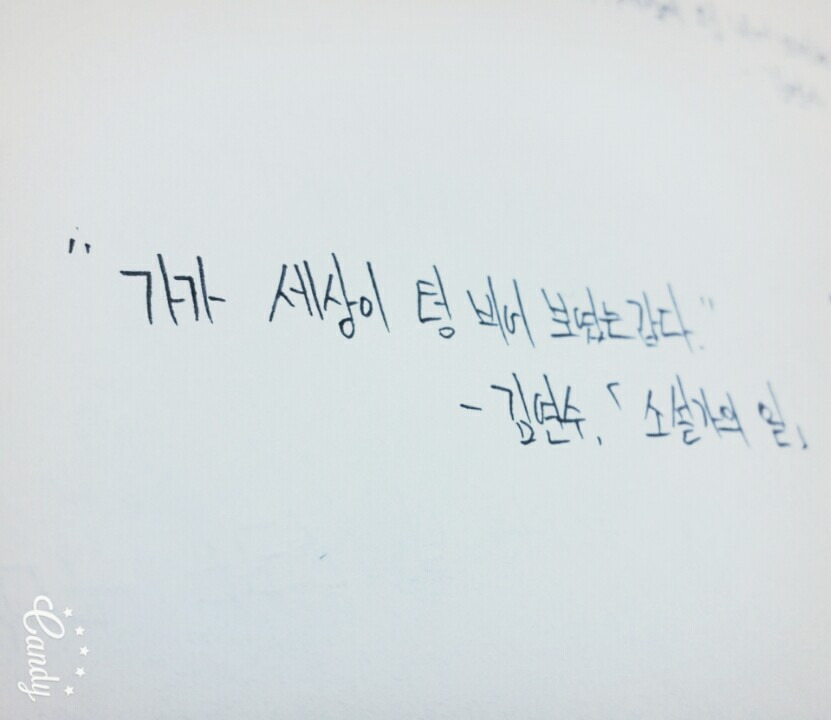 "가가 세상이 텅 비어 보였는갑다."
- 김연수, 「소설가의 일」
Candy